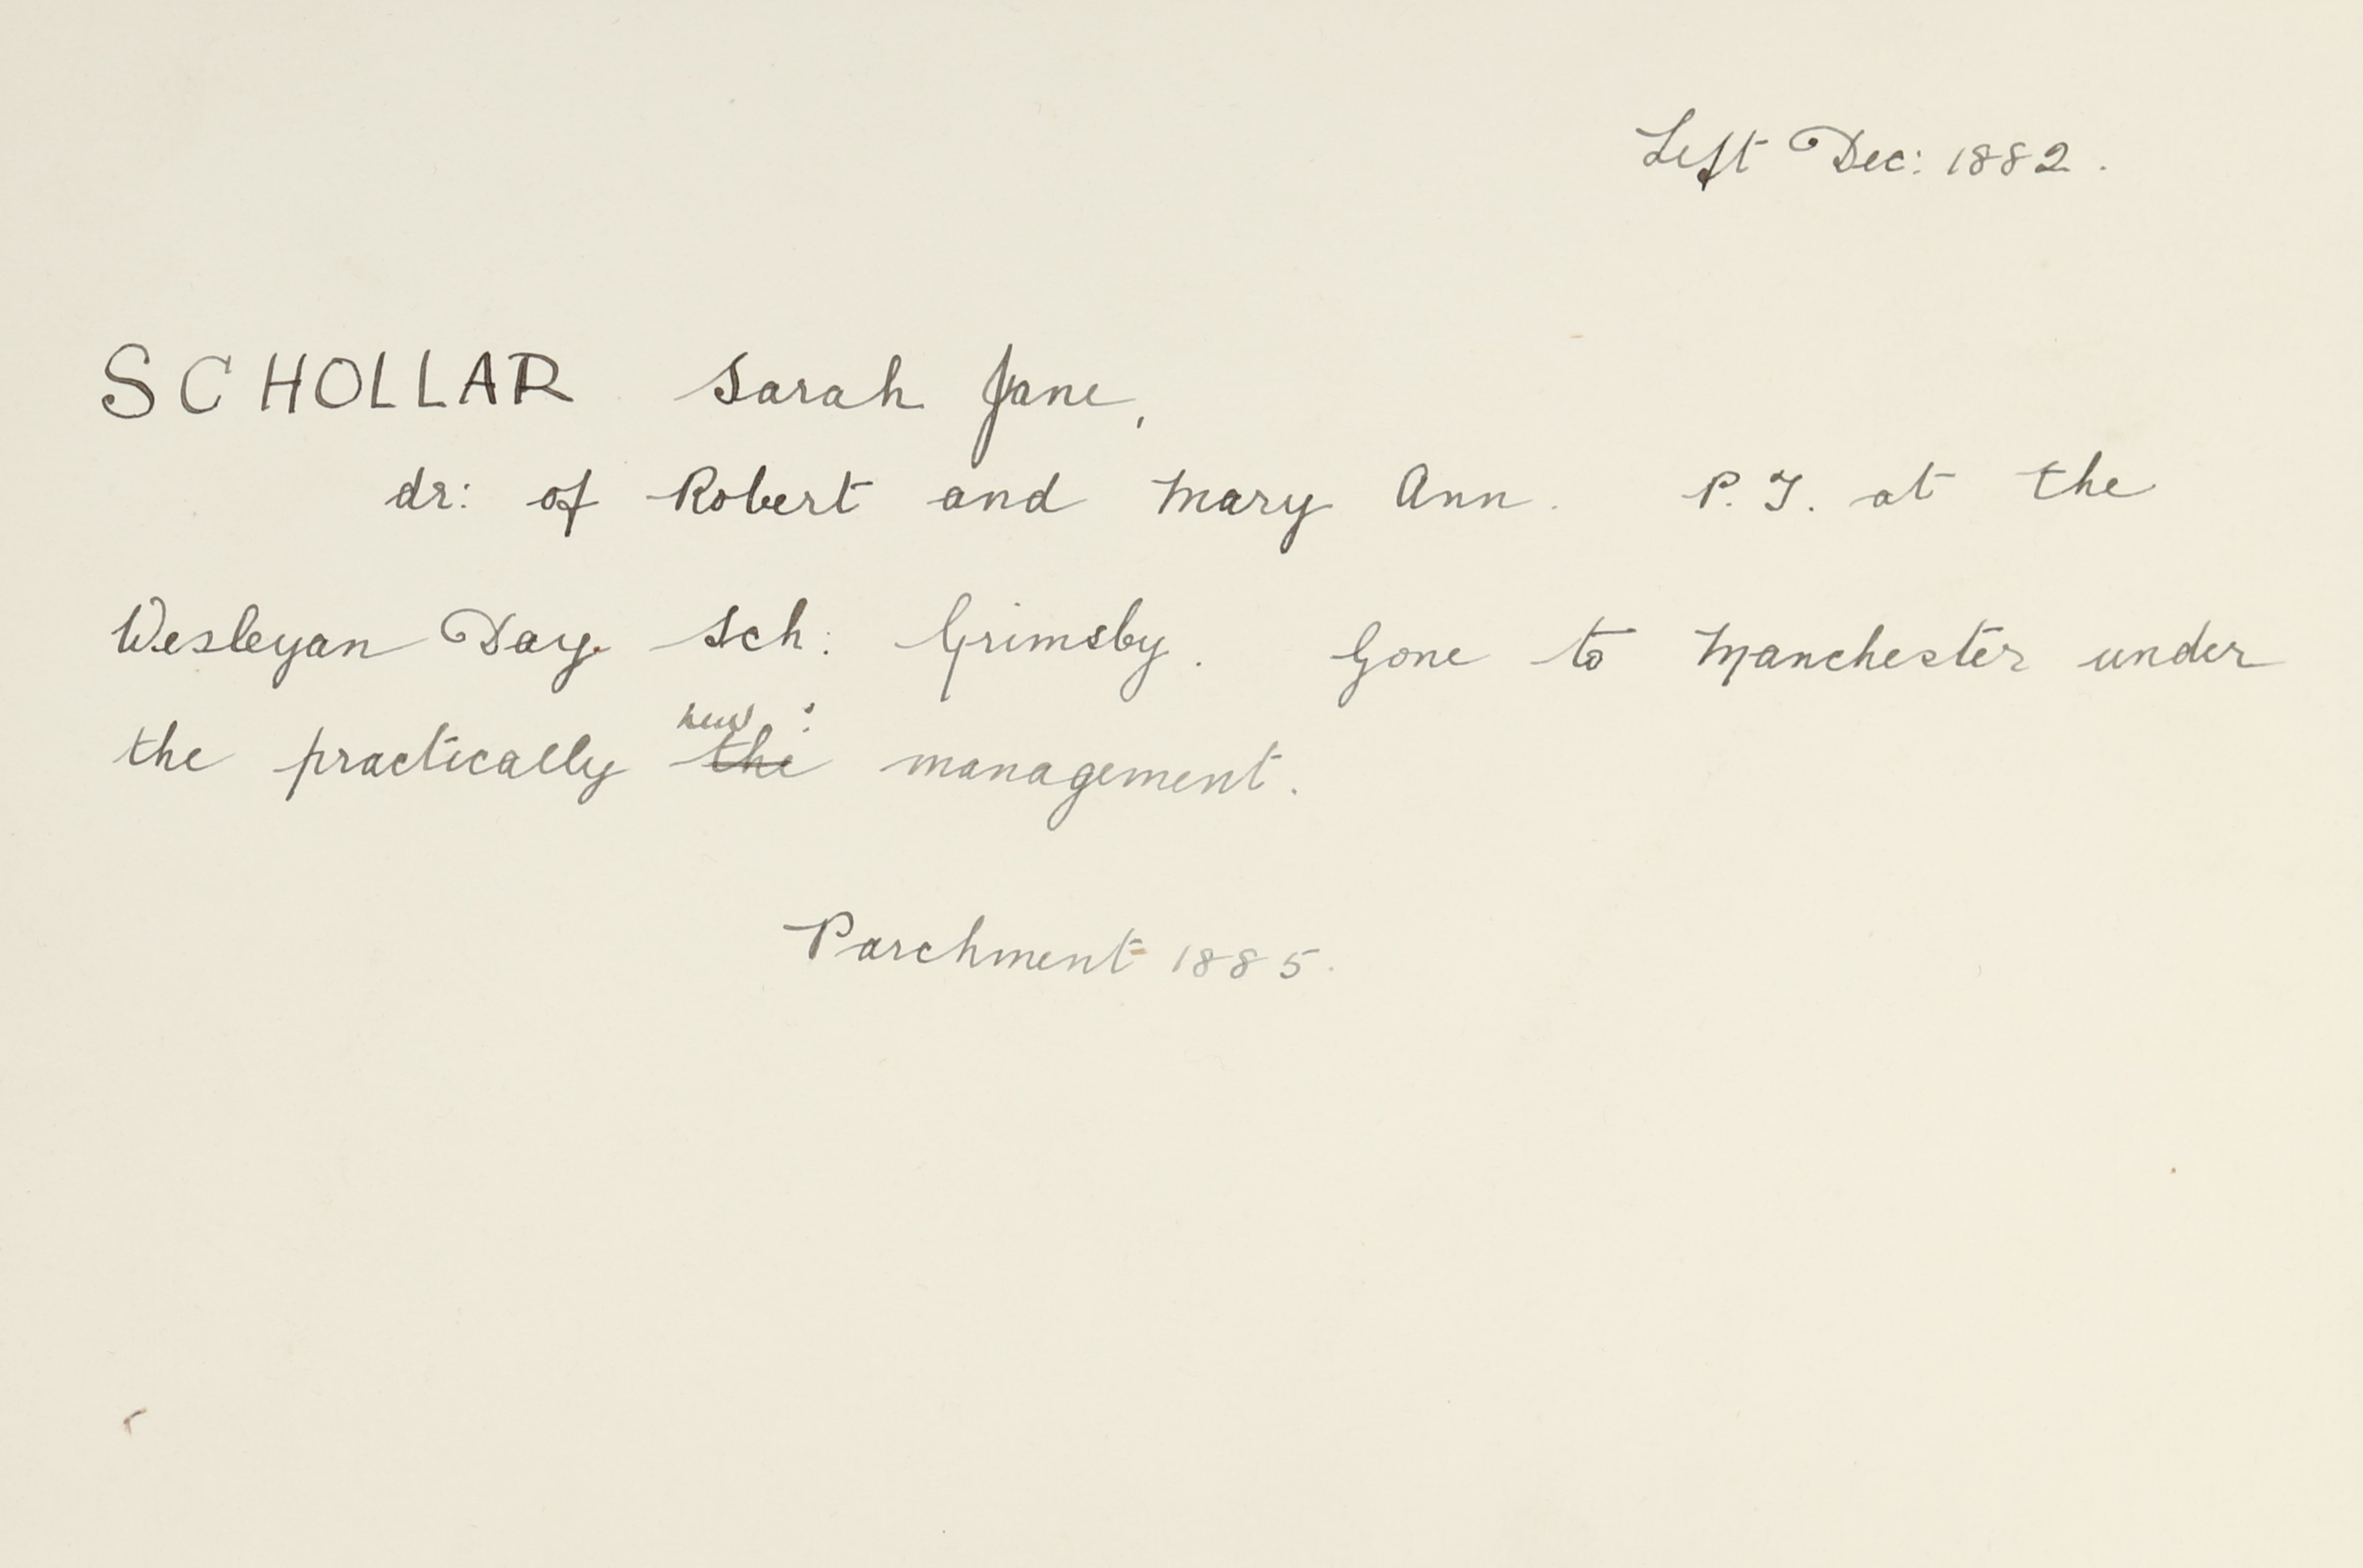 Left Dec: 1882.
SCHOLLAR Sarah Jane,
dr: of Robert and Mary Ann. P.T. at the
Wesleyan Day Sch: Grimsby. Gone to Manchester under
new :
the practically the management.
Parchment 1885.